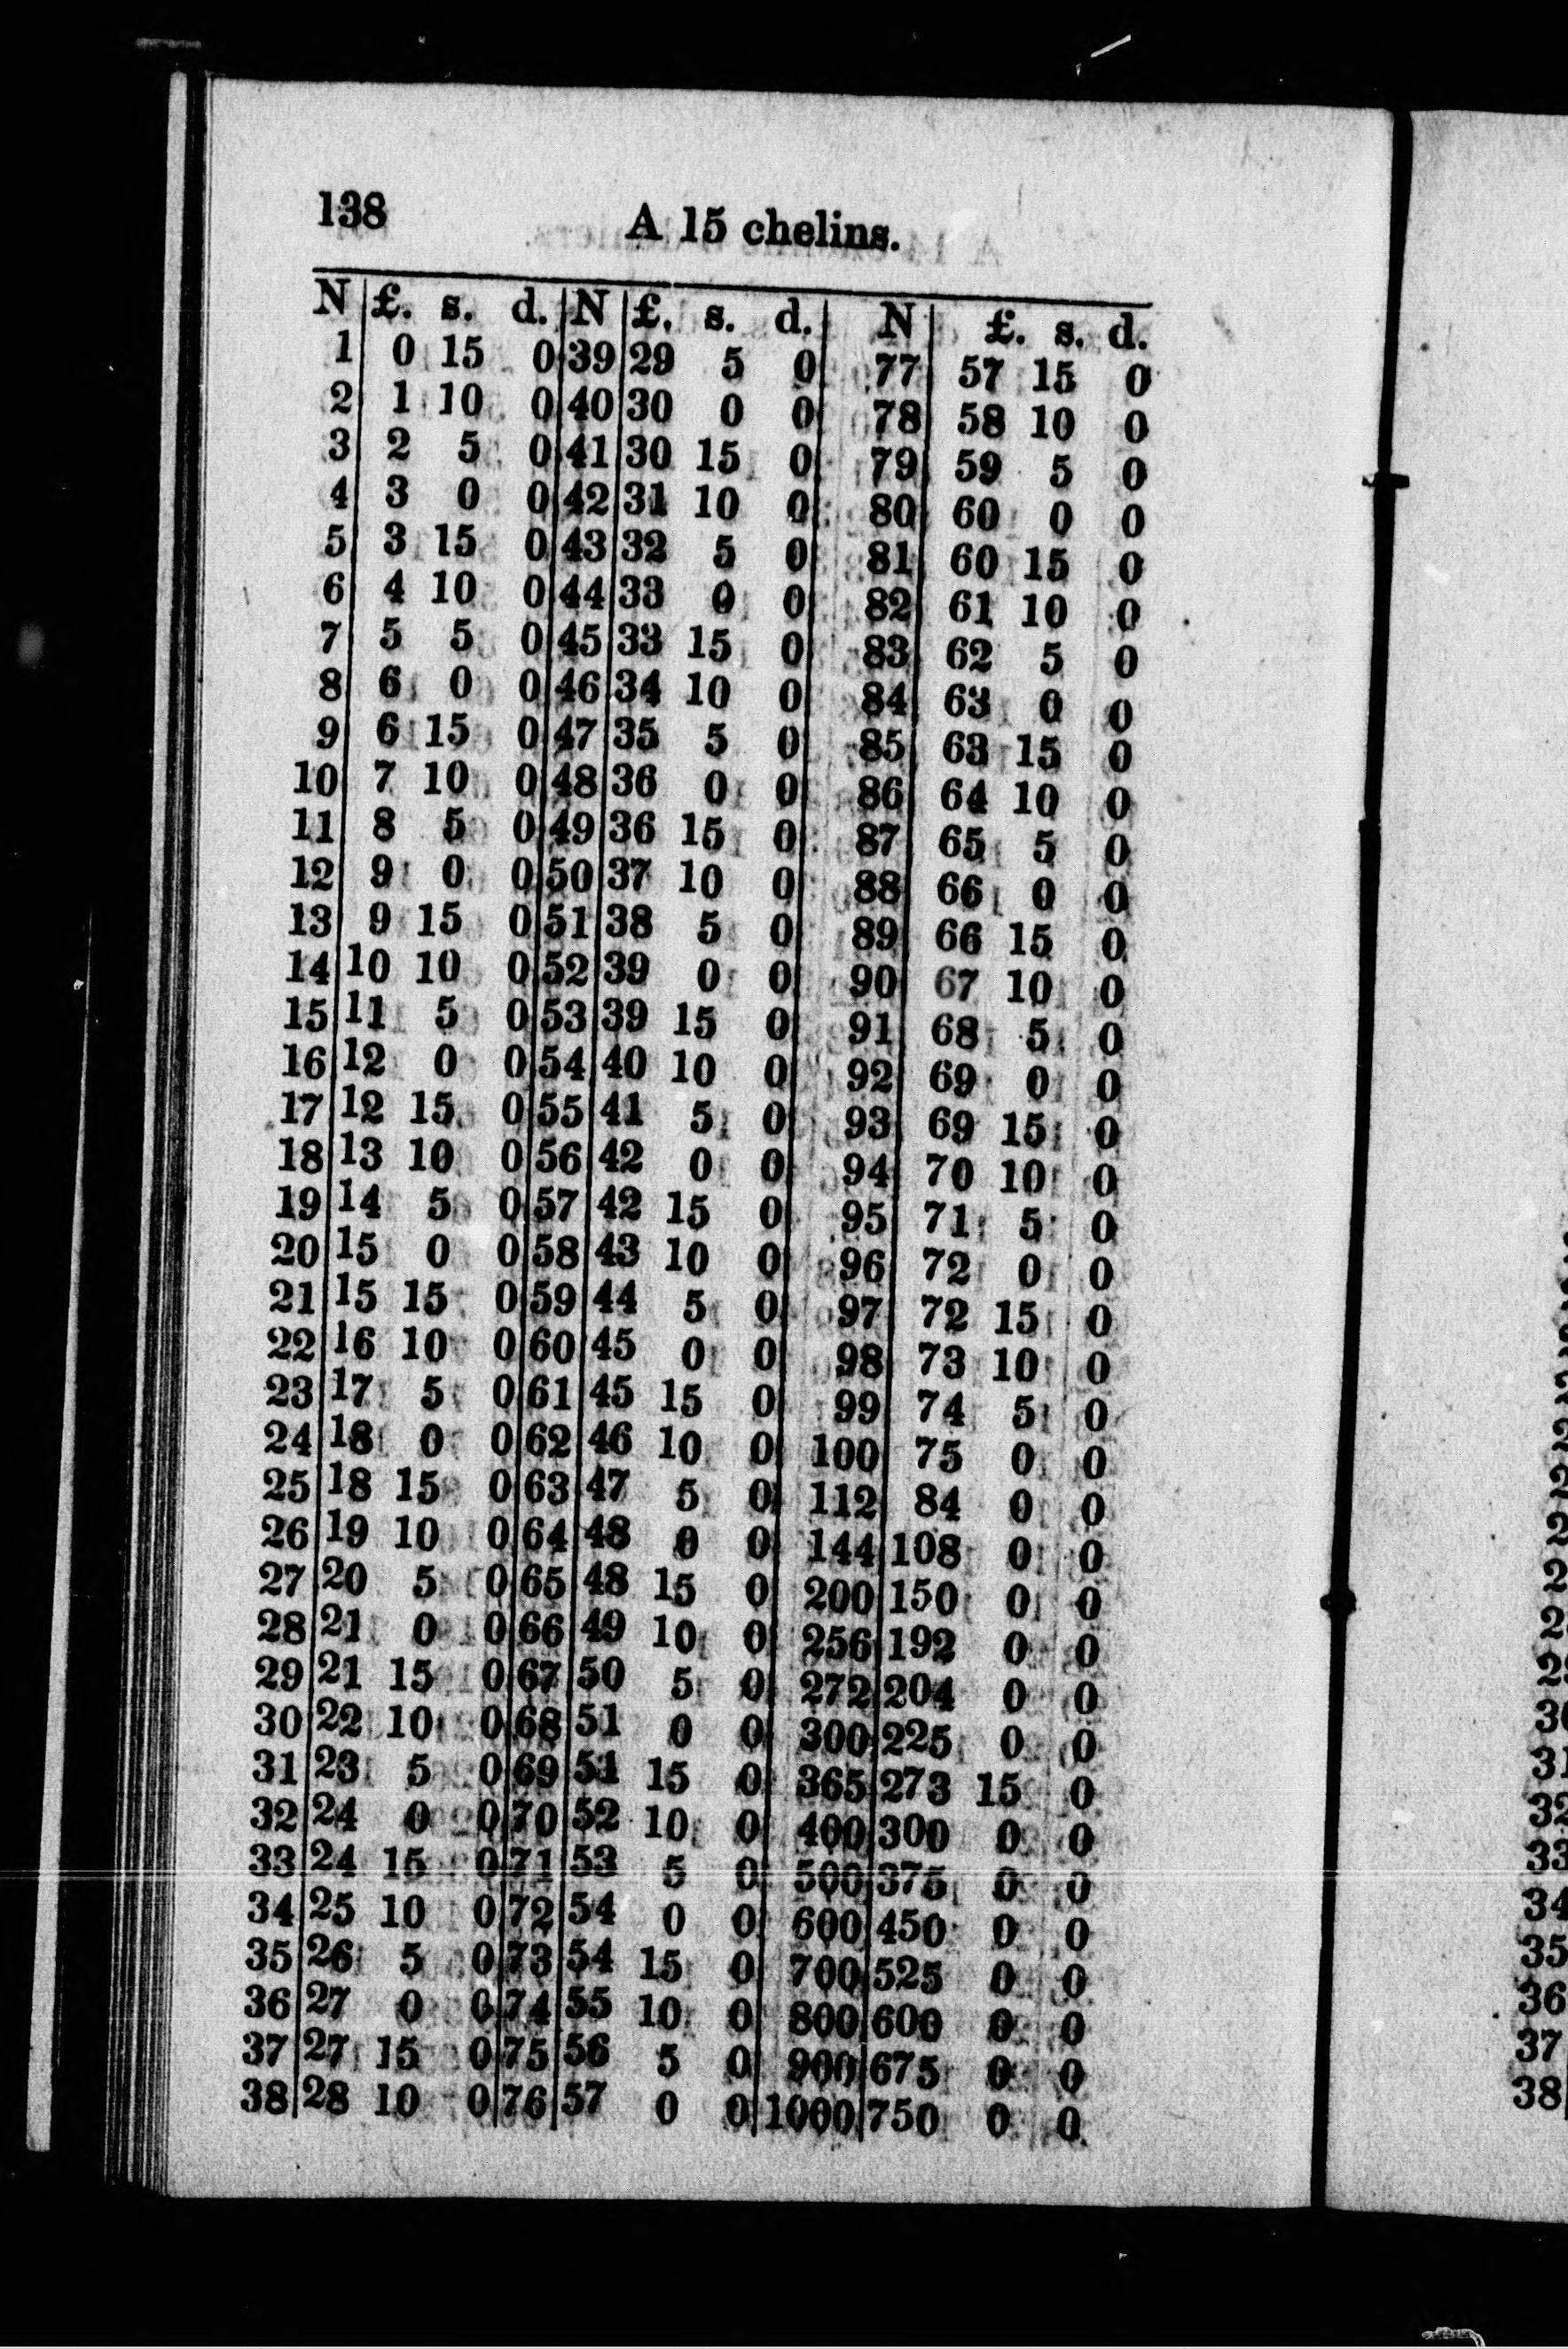 138 A 15 chelins.
N £. s. d. N £. s. d. N £. s. d.
1 0 15 0 39 29 5 0 77 57 15 0
2 1 10 0 40 30 0 0 78 58 10 0
3 2 5 0 41 30 15 0 79 59 5 0
4 3 0 0 42 31 10 0 80 60 0 0
5 3 15 0 43 32 5 0 81 60 15 0
6 4 10 0 44 33 0 0 82 61 10 0
7 5 5 0 45 33 15 0 83 62 5 0
8 6 0 0 46 34 10 0 84 63 0 0
9 6 15 0 47 35 5 0 85 63 15 0
10 7 10 0 48 36 0 0 86 64 10 0
11 8 5 0 49 36 15 0 87 65 5 0
12 9 0 0 50 37 10 0 88 66 0 0
13 9 15 0 51 38 5 0 89 66 15 0
14 10 10 0 52 39 0 0 90 67 10 0
15 11 5 0 53 39 15 0 91 68 5 0
16 12 0 0 54 40 10 0 92 69 0 0
17 12 15 0 55 41 5 0 93 69 15 0
18 13 10 0 56 42 0 0 94 70 10 0
19 14 5 0 57 42 15 0 95 71 5 0
20 15 0 0 58 43 10 0 96 72 0 0
21 15 15 0 59 44 5 0 97 72 15 0
22 16 10 0 60 45 0 0 98 73 10 0
23 17 5 0 61 45 15 0 99 74 5 0
24 18 0 0 62 46 10 0 100 75 0 0
25 18 15 0 63 47 5 0 112 84 0 0
26 19 10 0 64 48 0 0 144 108 0 0
27 20 5 0 65 48 15 0 200 150 0 0
28 21 0 0 66 49 10 0 256 192 0 0
29 21 15 0 67 50 5 0 272 204 0 0
30 22 10 0 68 51 0 0 300 225 0 0
31 23 5 0 69 51 15 0 365 273 15 0
32 24 0 0 70 52 10 0 400 300 0 0
33 24 15 0 71 53 5 0 500 375 0 0
34 25 10 0 72 54 0 0 600 450 0 0
35 26 5 0 73 54 15 0 700 525 0 0
36 27 0 0 74 55 10 0 800 600 0 0
37 27 15 0 75 56 5 0 900 675 0 0
38 28 10 0 76 57 0 0 1000 750 0 0
30
31
32
33
34
35
36
37
38